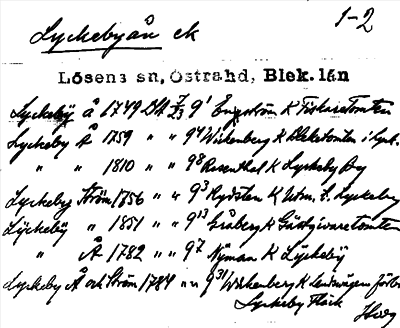 1-2
Lyckebyån ek
Lösens sn, Östrahd, Blek. län
Lyckeby å 1749 9¹ Engström K Fiskaretomten
Lyckeby Å 1759 " " 9⁴ Wickenberg K Bleketomten i Lyck.
" " 1810 " " 9⁸ Rosenthal K Lyckeby By
Lyckeby Ström 1756 " " 9³ Rydsten K Utm. t. Lyckeby
Lyckeby " 1851 " " 9¹³ Gråberg K Gästgivaretomten
" Å 1782 " " 9⁷ Nyman K Lyckeby
Lyckeby Å och Ström 1784 " " 9³¹ Wickenberg K Landsvägen förbi
Lyckeby Fläck